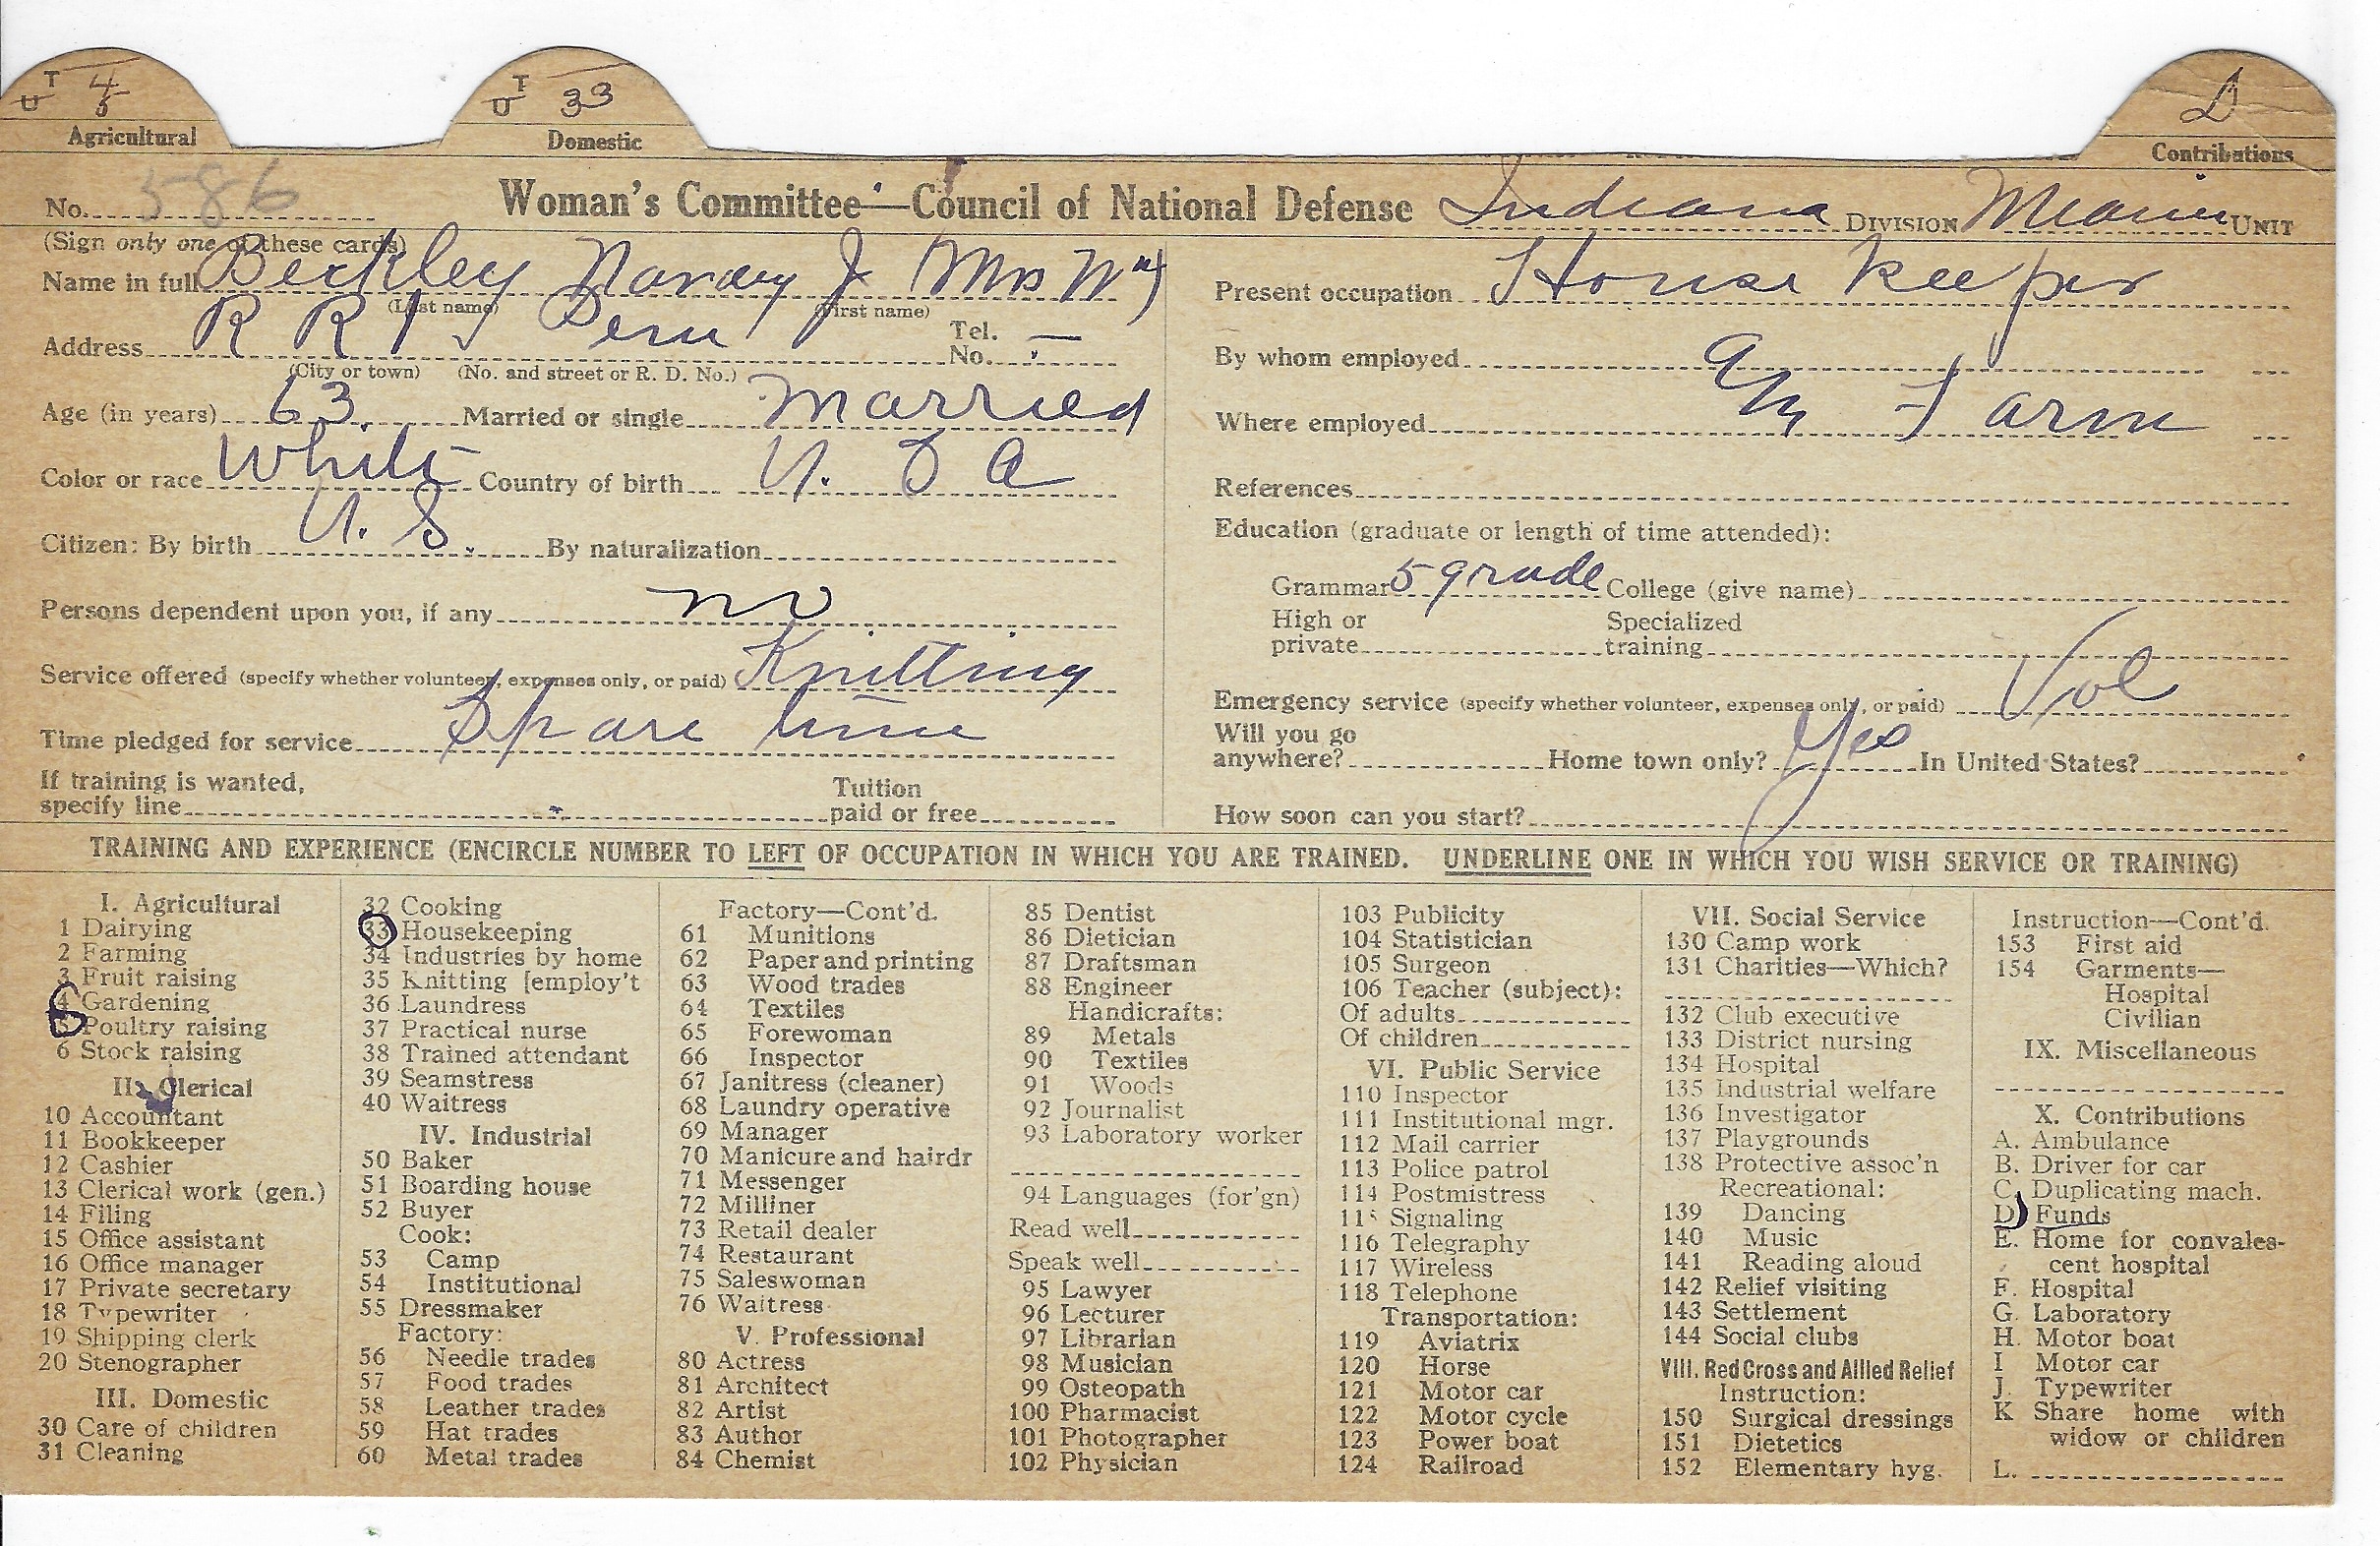 T U 4 5
Agricultural
T U 33
Domestic
D
Contributions
No. 586
Woman's Committee—Council of National Defense Indiana DIVISION Miami UNIT
(Sign only one of these cards)
Name in full Beckley J (Mrs Wm)
(Last name) (First name)
Address R R 1 Peru Tel. No. —
(City or town) (No. and street or R. D. No.)
Age (in years) 63 Married or single Married
Color or race White Country of birth U. S A
Citizen: By birth U. S. By naturalization
Persons dependent upon you, if any no
Service offered (specify whether volunteer, expenses only, or paid) Knitting
Time pledged for service Spare time
If training is wanted, specify line Tuition paid or free
Present occupation House keeper
By whom employed
Where employed On Farm
References
Education (graduate or length of time attended):
Grammar 5 grade College (give name)
High or private Specialized training
Emergency service (specify whether volunteer, expenses only, or paid) Vol
Will you go anywhere? Home town only? Yes In United States?
How soon can you start?
TRAINING AND EXPERIENCE (ENCIRCLE NUMBER TO LEFT OF OCCUPATION IN WHICH YOU ARE TRAINED. UNDERLINE ONE IN WHICH YOU WISH SERVICE OR TRAINING)
I. Agricultural
1 Dairying
2 Farming
3 Fruit raising
4 Gardening
5 Poultry raising
6 Stock raising
II. Clerical
10 Accountant
11 Bookkeeper
12 Cashier
13 Clerical work (gen.)
14 Filing
15 Office assistant
16 Office manager
17 Private secretary
18 Typewriter
19 Shipping clerk
20 Stenographer
III. Domestic
30 Care of children
31 Cleaning
32 Cooking
33 Housekeeping
34 Industries by home
35 Knitting [employ't
36 Laundress
37 Practical nurse
38 Trained attendant
39 Seamstress
40 Waitress
IV. Industrial
50 Baker
51 Boarding house
52 Buyer
Cook:
53 Camp
54 Institutional
55 Dressmaker
Factory:
56 Needle trades
57 Food trades
58 Leather trades
59 Hat trades
60 Metal trades
Factory—Cont'd.
61 Munitions
62 Paper and printing
63 Wood trades
64 Textiles
65 Forewoman
66 Inspector
67 Janitress (cleaner)
68 Laundry operative
69 Manager
70 Manicure and hairdr
71 Messenger
72 Milliner
73 Retail dealer
74 Restaurant
75 Saleswoman
76 Waitress
V. Professional
80 Actress
81 Architect
82 Artist
83 Author
84 Chemist
85 Dentist
86 Dietician
87 Draftsman
88 Engineer
Handicrafts:
89 Metals
90 Textiles
91 Woods
92 Journalist
93 Laboratory worker
94 Languages (for'gn)
Read well
Speak well
95 Lawyer
96 Lecturer
97 Librarian
98 Musician
99 Osteopath
100 Pharmacist
101 Photographer
102 Physician
103 Publicity
104 Statistician
105 Surgeon
106 Teacher (subject):
Of adults
Of children
VI. Public Service
110 Inspector
111 Institutional mgr.
112 Mail carrier
113 Police patrol
114 Postmistress
115 Signaling
116 Telegraphy
117 Wireless
118 Telephone
Transportation:
119 Aviatrix
120 Horse
121 Motor car
122 Motor cycle
123 Power boat
124 Railroad
VII. Social Service
130 Camp work
131 Charities—Which?
132 Club executive
133 District nursing
134 Hospital
135 Industrial welfare
136 Investigator
137 Playgrounds
138 Protective assoc'n
Recreational:
139 Dancing
140 Music
141 Reading aloud
142 Relief visiting
143 Settlement
144 Social clubs
VIII. Red Cross and Allied Relief
Instruction:
150 Surgical dressings
151 Dietetics
152 Elementary hyg.
Instruction—Cont'd.
153 First aid
154 Garments—
Hospital
Civilian
IX. Miscellaneous
X. Contributions
A. Ambulance
B. Driver for car
C. Duplicating mach.
D. Funds
E. Home for convales-
cent hospital
F. Hospital
G. Laboratory
H. Motor boat
I Motor car
J. Typewriter
K Share home with
widow or children
L.